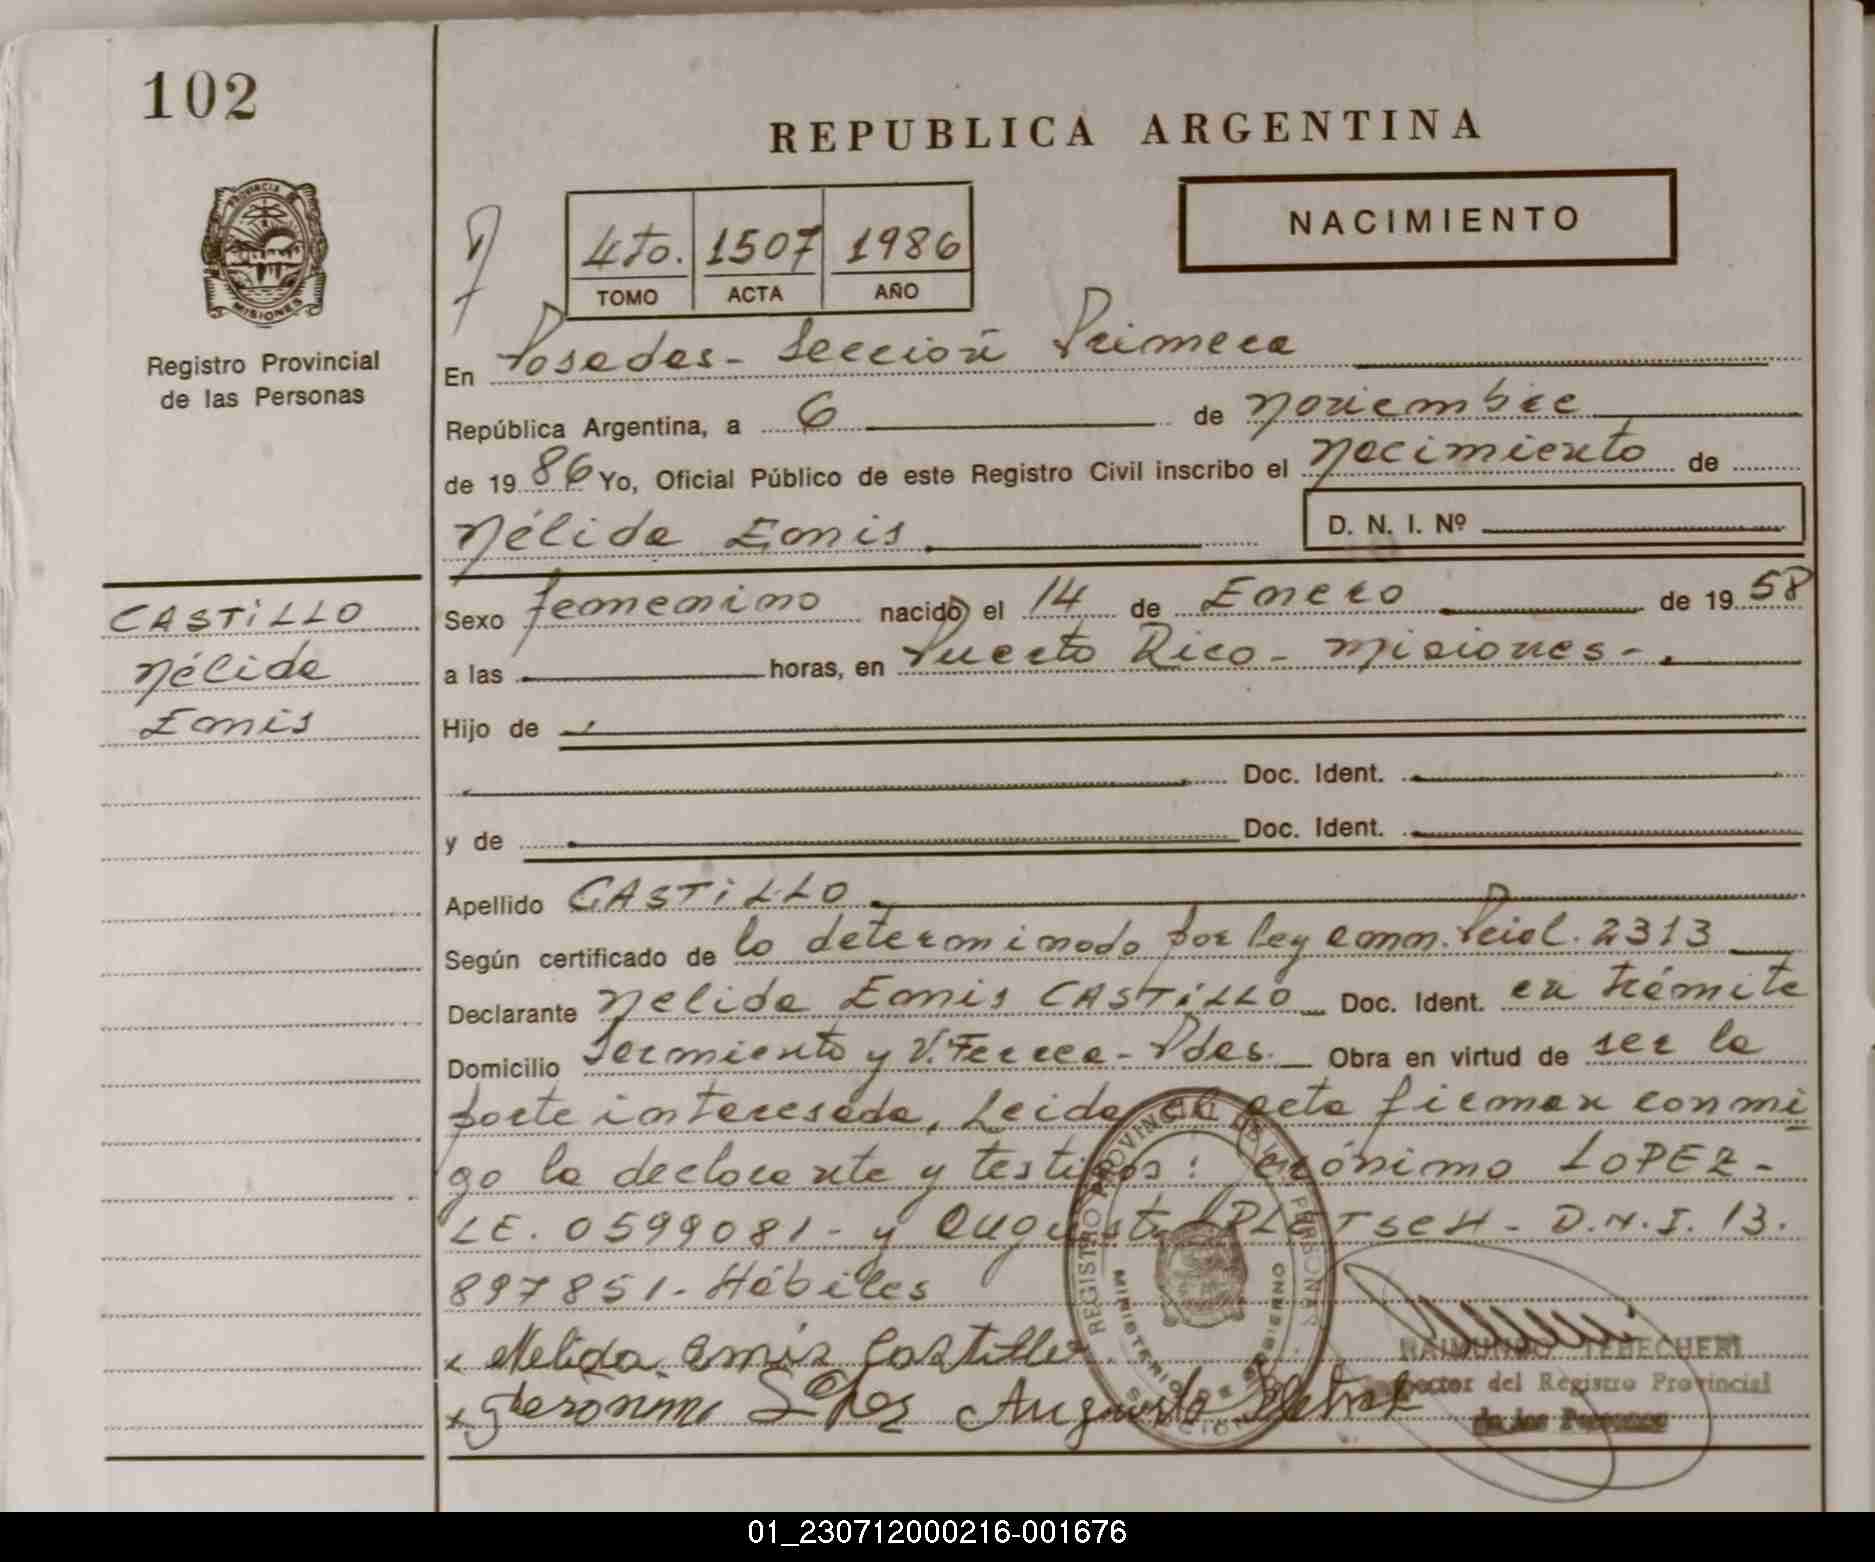 102
REPUBLICA ARGENTINA
PROVINCIA
MISIONES
Registro Provincial
de las Personas
4to. 1507 1986
TOMO ACTA AÑO
NACIMIENTO
En Posadas - Sección Primera
República Argentina, a 6 de Noviembre
de 1986 Yo, Oficial Público de este Registro Civil inscribo el Nacimiento de
Nélida Emis
D. N. I. Nº
CASTILLO
Nélida
Emis
Sexo femenino nacido el 14 de Enero de 1958
a las horas, en Puerto Rico - Misiones -
Hijo de
Doc. Ident.
y de Doc. Ident.
Apellido CASTILLO
Según certificado de lo determinado por ley enm. Pcial. 2313
Declarante Nelida Emis CASTILLO Doc. Ident. en trámite
Domicilio Sarmiento y V. Ferrea - Pdas. Obra en virtud de ser la
parte interesada. Leida el acta firman conmi
go la declarante y testigos: Gerónimo LOPEZ -
LE. 0599081 - y Augusto PLETSCH - D.N.I. 13.
897851. Hábiles
x Nelida Emis Castillo
x Geronimo López Augusto Pletsch
REGISTRO PROVINCIAL DE LAS PERSONAS
MINISTERIO DE GOBIERNO
RAIMUNDO TEHECHERI
Director del Registro Provincial
de las Personas
01_230712000216-001676